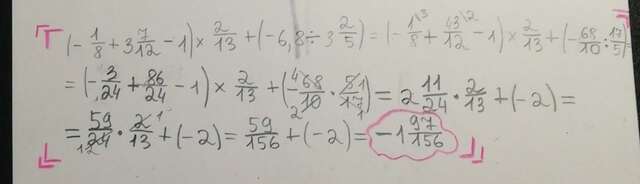 (-1/8 + 3 7/12 - 1) × 2/13 + (-6,8 ÷ 3 2/5) = (-1/8\3 + 43/12\2 - 1) × 2/13 + (-68/10 : 17/5)
= (-3/24 + 86/24 - 1) × 2/13 + (-68/10 · 5/17) = 2 11/24 · 2/13 + (-2) =
= 59/24 · 2/13 + (-2) = 59/156 + (-2) = -1 97/156